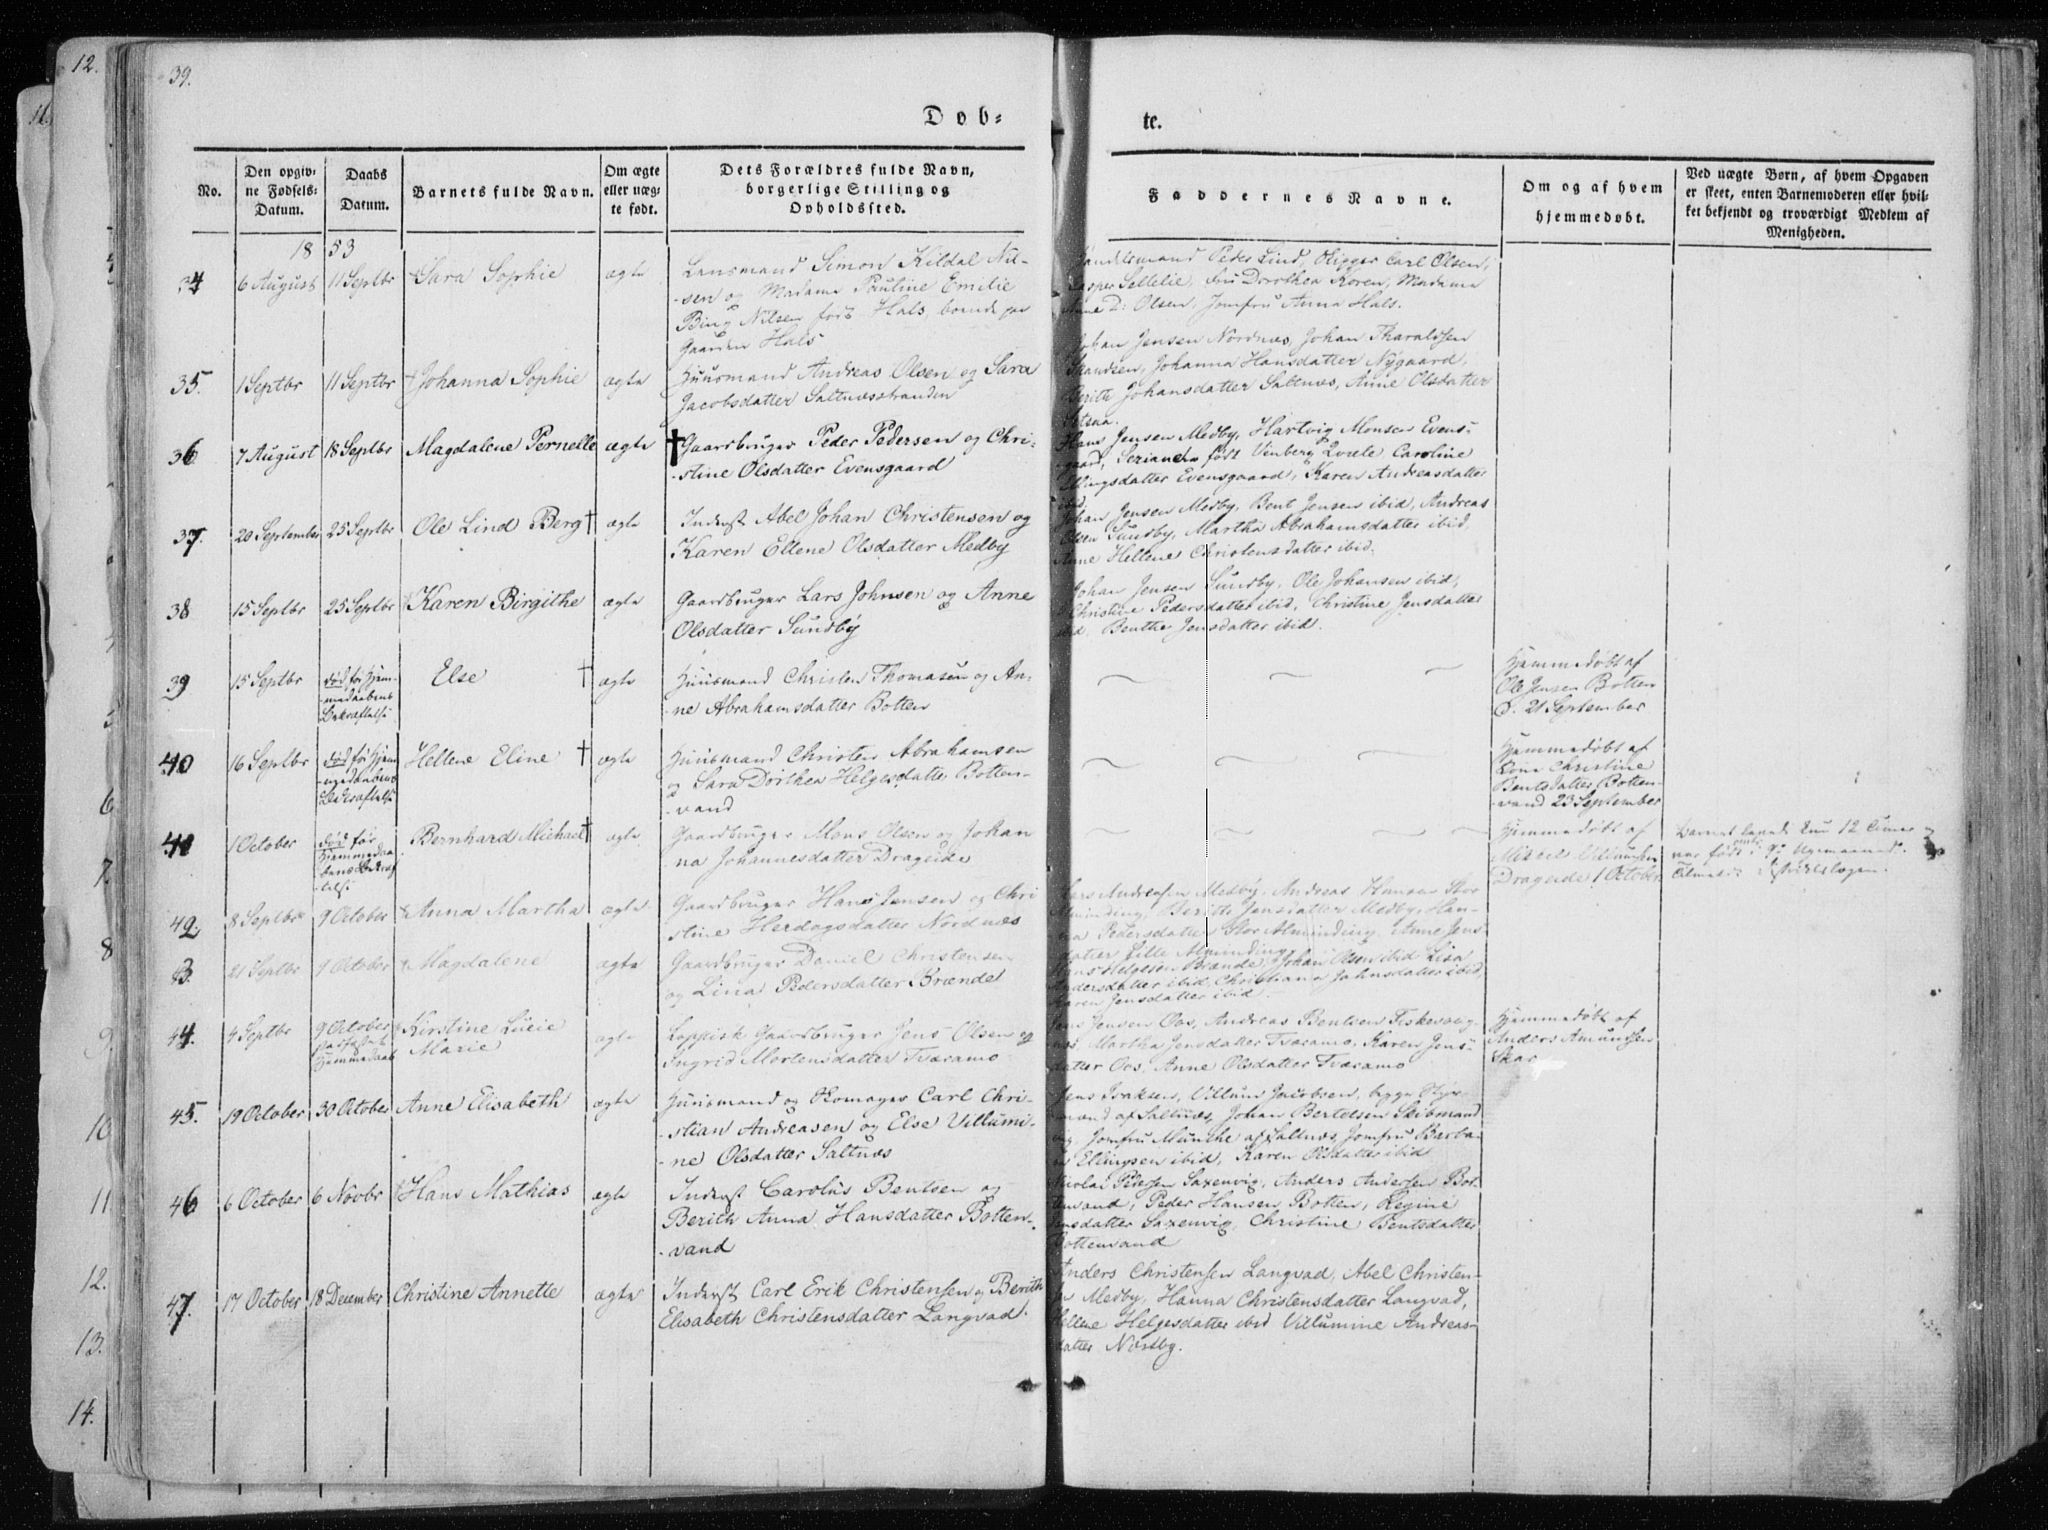 12.
11.
39.
Døb-
te.
No.
Den opgiv-
ne Fødsels-
Datum.
Daabs
Datum.
Barnets fulde Navn.
Om ægte
eller uæg-
te født.
Dets Forældres fulde Navn,
borgerlige Stilling og
Opholdssted.
Faddernes Navne.
Om og af hvem
hjemmedøbt.
Ved uægte Børn, af hvem Opgaven
er skeet, enten Barnemoderen eller hvil-
ket bekjendt og troværdigt Medlem af
Menigheden.
18 53
34 6 August 11 Septbr Sara Sophie ægte
Lensmand Simon Kildal Nil-
-sen og Madame Pauline Emilie
Bing Nilsen født Hals, boende paa
Gaarden Hals
Peder Lind, Oligger Carl Olsen,
Fru Dorothea Koren, Madame
Olsen, Jomfru Anna Hals.
35. 1 Septbr 11 Septbr Johanna Sophie ægte
Huusmand Andreas Olsen og Sara
Jacobsdatter Saltnæsstranden
Johan Jensen Nordnæs, Johan Tharaldsen
Johanna Hansdatter Nygaard,
Berith Johansdatter Saltnæs, Anne Olsdatter
36 7 August 18 Septbr Magdalene Pernelle ægte
Gaardbruger Peder Pedersen og Chri-
-stine Olsdatter Evensgaard
Hans Jensen Medby, Hartvig Monsen Evens-
født Vinberg Caroline
Ellingsdatter Evensgaard, Karen Andreasdatter
ibid.
37. 20 September 25 Septbr Ole Lind Berg † ægte
Inderst Abel Johan Christensen og
Karen Ellene Olsdatter Medby
Johan Jensen Medby, Bent Jensen ibid, Andreas
Olsen Sundby, Martha Abrahamsdatter ibid,
Anne Hellene Christensdatter ibid.
38 15 Septbr 25 Septbr Karen Birgithe ægte
Gaardbruger Lars Johnsen og Anne
Olsdatter Sundby
Johan Jensen Sundby, Ole Johansen ibid,
Christine Pedersdatter ibid, Christine Jensdatter
ibid, Benthe Jensdatter ibid.
39 15 Septbr død før Hjem-
-medaabens
Bekræftelse
Else † ægte
Huusmand Christen Thomasen og An-
-ne Abrahamsdatter Botten
Hjemmedøbt af
Ole Jensen Botten
d. 21 September
40 16 Septbr død før Hjem-
-medaabens
Bekræftelse
Hellene Eline † ægte
Huusmand Christen Abrahamsen
og Sara Dorthea Helgesdatter Botten-
-vand
Hjemmedøbt af
Kone Christine
Bentsdatter Botten-
-vand 23 September
41 1 October død før
Hjemmedaa-
bens Bekræf-
-telse
Bernhard Michael † ægte
Gaardbruger Mons Olsen og Johan
-na Johannesdatter Drageide
Hjemmedøbt af
Mikkel Villumsen
Drageide 1 October
Barnet levede kun 12 Timer og
var født
42. 8 Septbr 9 October Anna Martha ægte
Gaardbruger Hans Jensen og Chri
stine Herdagsdatter Nordnæs
Lars Andreasen Medby, Andreas Hansen Stor
Alminding, Berith Jensdatter Medby, Han-
na Pedersdatter Stor Alminding, Anne Jens
datter Lille Alminding
43. 21 Septbr 9 October Magdalene ægte
Gaardbruger Daniel Christensen
og Lina Pedersdatter Brænde
Hans Helgesen Brænde, Johan Olsen ibid Lisa
Andersdatter ibid, Christiana Johnsdatter ibid,
Karen Jensdatter ibid.
44. 4 Septbr 9 October
stadfæstet
Hjemmedaab
Kirstine Lucie
Marie
ægte
Lappisk Gaardbruger Jens Olsen og
Ingrid Mortensdatter Tværamo
Jens Jensen Oos, Andreas Bentsen Fiskevaag-
næs, Martha Jensdatter Tværamo, Karen Jens-
datter Oos, Anne Olsdatter Tværamo
Hjemmedøbt af
Anders Amundsen
Skar
45. 19 October 30 October Anne Elisabeth ægte
Huusmand og Skomager Carl Chri-
-stian Andreasen og Else Villumi-
-ne Olsdatter Saltnæs
Jens Isaksen, Villum Jacobsen, begge
af Saltnæs, Johan Bertelsen Skibmand
Jomfru Munthe af Saltnæs, Jomfru Barba-
ra Ellingsen ibid, Karen Olsdatter ibid
46 6 October 6 Novbr Hans Mathias ægte
Inderst Carolus Bentsen og
Berith Anna Hansdatter Botten-
-vand
Nicolai Pedersen Saxenvig, Anders Andersen Bot-
tenvand, Peder Hansen Botten, Regine
Jensdatter Saxenvig, Christine Bentsdatter
Bottenvand
47. 17 October 18 December Christine Annette ægte
Inderst Carl Erik Christensen og Berith
Elisabeth Christensdatter Langvad.
Anders Christensen Langvad, Abel Christen-
sen Medby, Hanna Christensdatter Langvad,
Hellene Helgesdatter ibid Villumine Andreas-
datter Næstby.
6
7.
8
9
10
11
12.
13.
14.